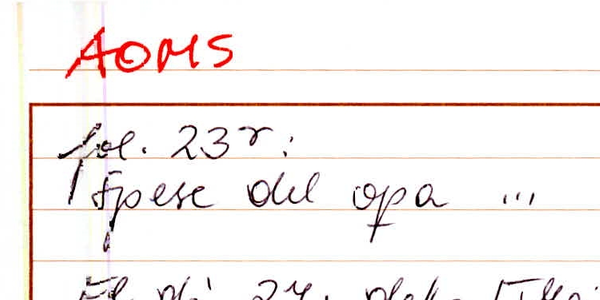 AOMS
fol. 23r:
Spese del opa ...